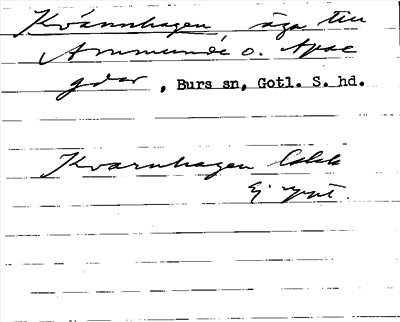 Kvännhagen äga till
Ammunde o. Apse
gdar, Burs sn, Gotl. S. hd.
Kvarnhagen
Ej